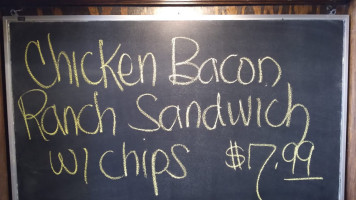 Chicken Bacon
Ranch Sandwich
w/ chips $7.99